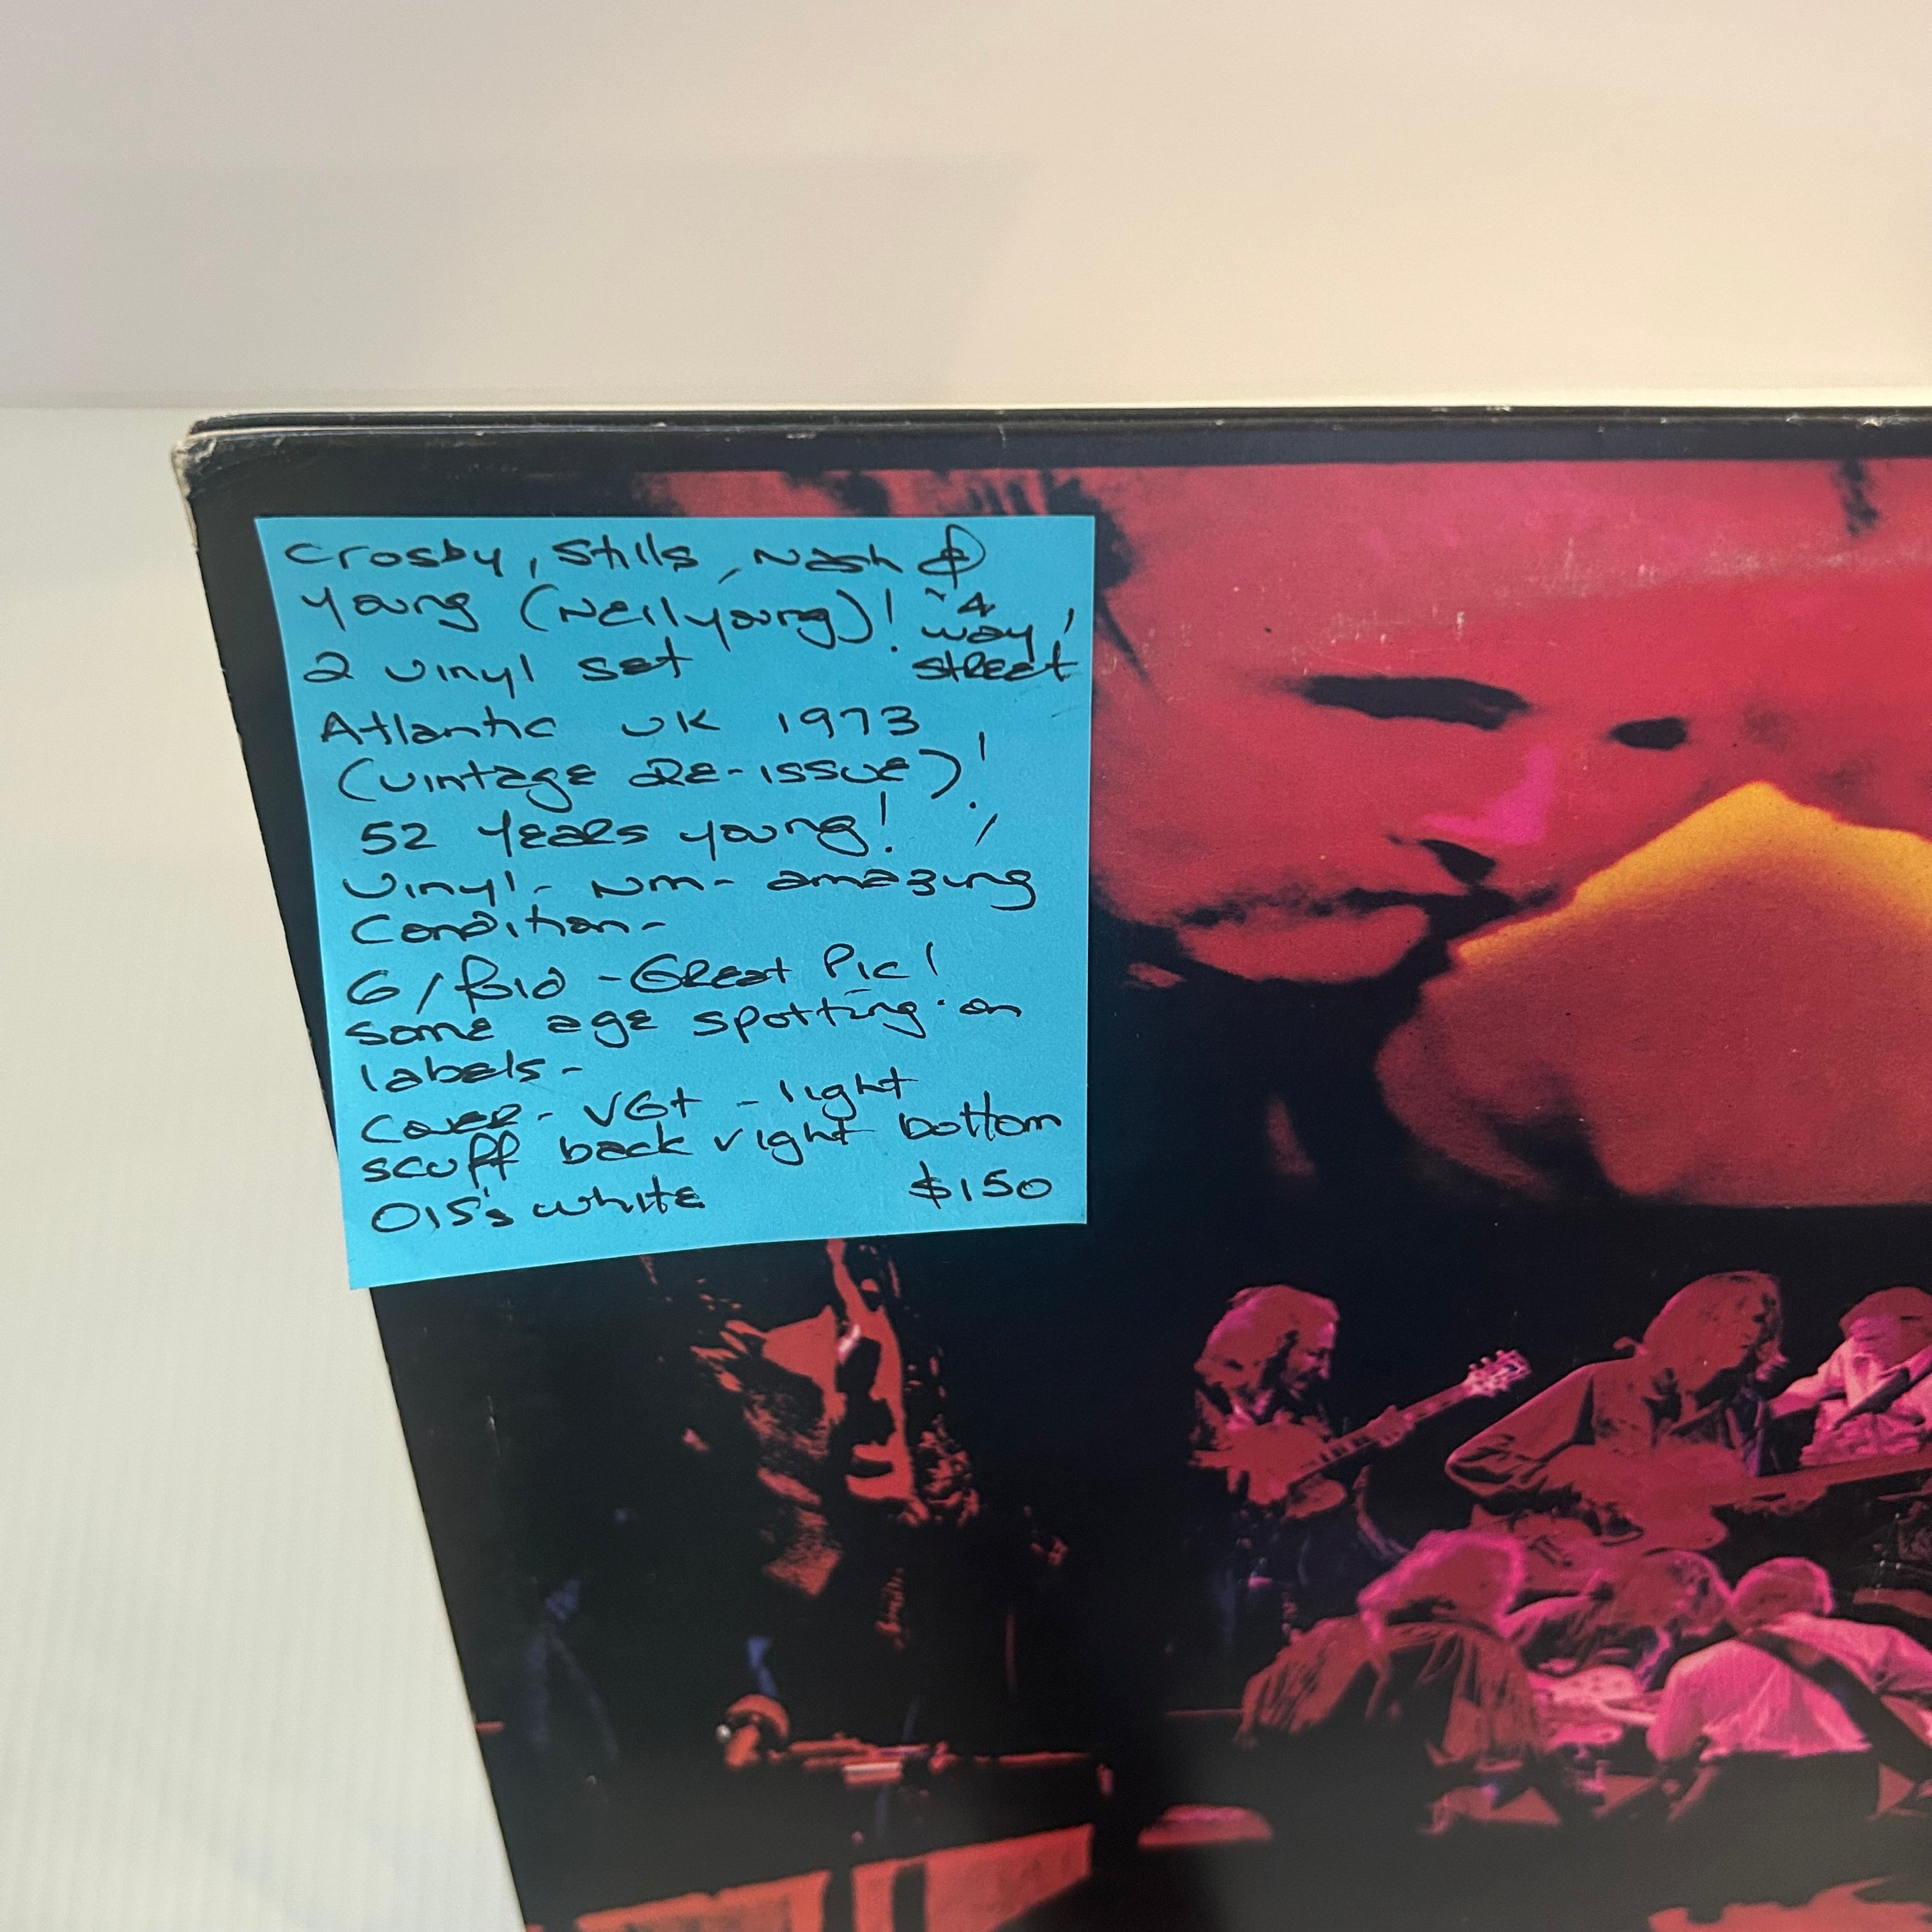 Crosby, Stills, Nash &
Young (Neil Young)! "4
way!
2 vinyl set street
Atlantic UK 1973
(vintage RE-ISSUE)!
52 years young!
Vinyl - NM - amazing
Condition -
G/Fold - Great Pic!
some age spotting on
labels -
Cover - VG+ - light
scuff back right bottom
O/S's white $150